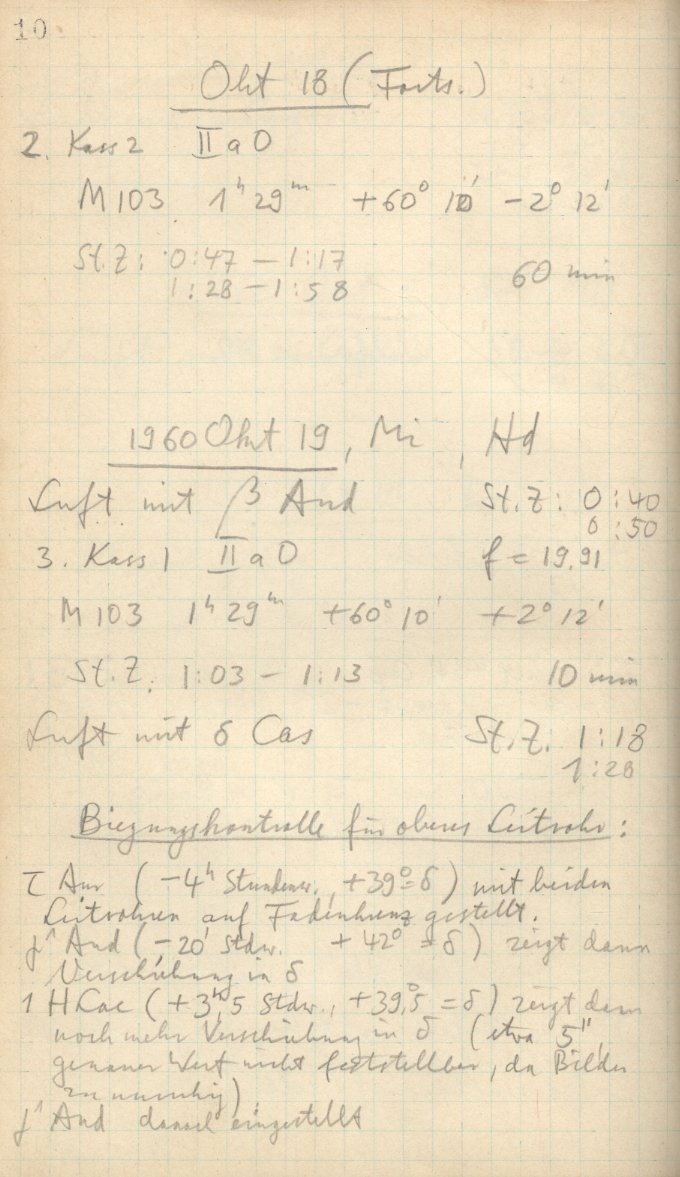 10
Okt 18 (Forts.)
2. Kass 2 II a O
M 103 1ʰ 29ᵐ +60° 10′ -2° 12′
St. Z: 0:47 - 1:17
1:28 - 1:58 60 min
1960 Okt 19, Mi, Hd
Luft mit β And St. Z: 0:40
0:50
3. Kass 1 II a O f = 19.91
M 103 1ʰ 29ᵐ +60° 10′ +2° 12′
St. Z. 1:03 - 1:13 10 min
Luft mit δ Cas St. Z. 1:18
1:28
Biegungskontrolle für oberes Leitrohr:
τ Aur (-4ʰ Stundenw., +39° = δ) mit beiden
Leitrohren auf Fadenkreuz gestellt.
And (-20′ Stdw. +42° = δ) zeigt dann
Verschiebung in δ
1 H Lac (+3ʰ,5 Stdw., +39,°5 = δ) zeigt dann
noch mehr Verschiebung in δ (etwa 5″,
genauer Wert nicht feststellbar, da Bilder
zu unruhig).
And danach eingestellt